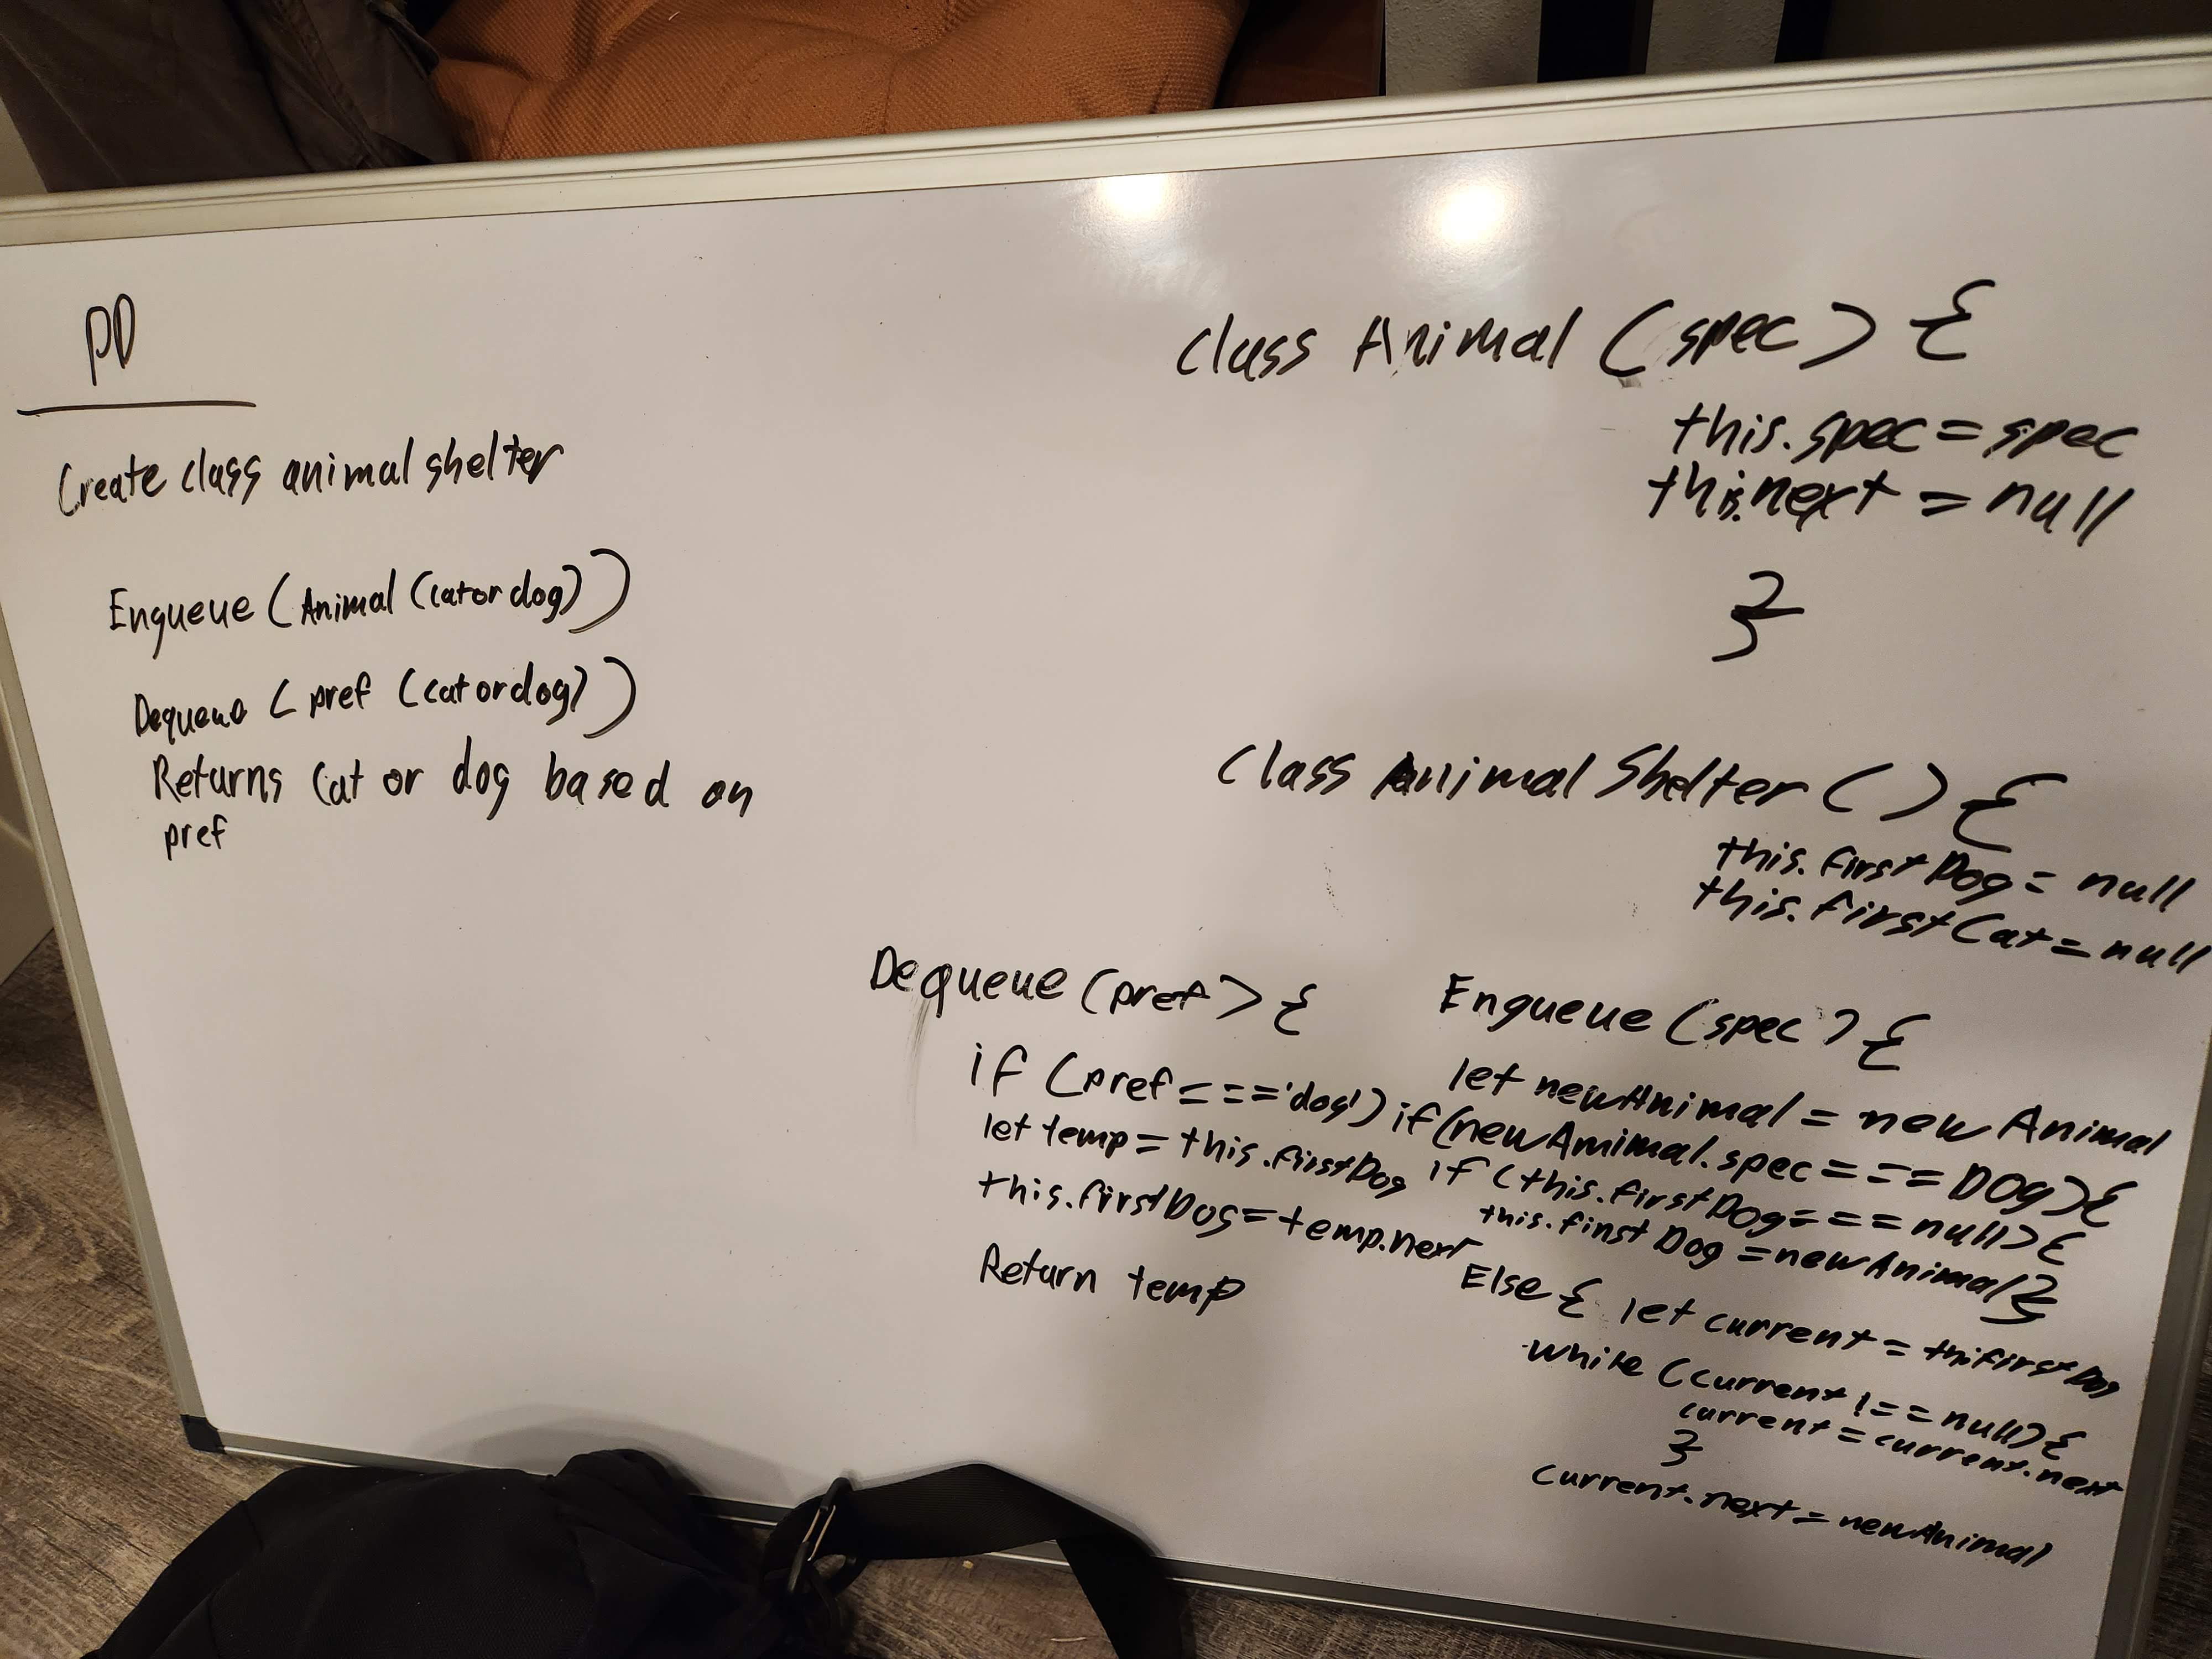 PD
Create class animal shelter
Enqueue (Animal (cat or dog))
Dequeue (pref (cat or dog))
Returns Cat or dog based on
pref
class Animal (spec) {
this.spec = spec
this.next = null
}
Class Animal Shelter () {
this.first Dog = null
this.first Cat = null
Dequeue (pref) {
if (pref === 'dog')
let temp = this.firstDog
this.firstDog = temp.next
Return temp
Enqueue (spec) {
let newAnimal = new Animal
if (newAmimal.spec === DOg) {
if (this.firstDog === null) {
this.first Dog = newAnimal}
Else { let current = thifirst Dog
while (current !== null) {
current = current.next
}
current.next = newAnimal